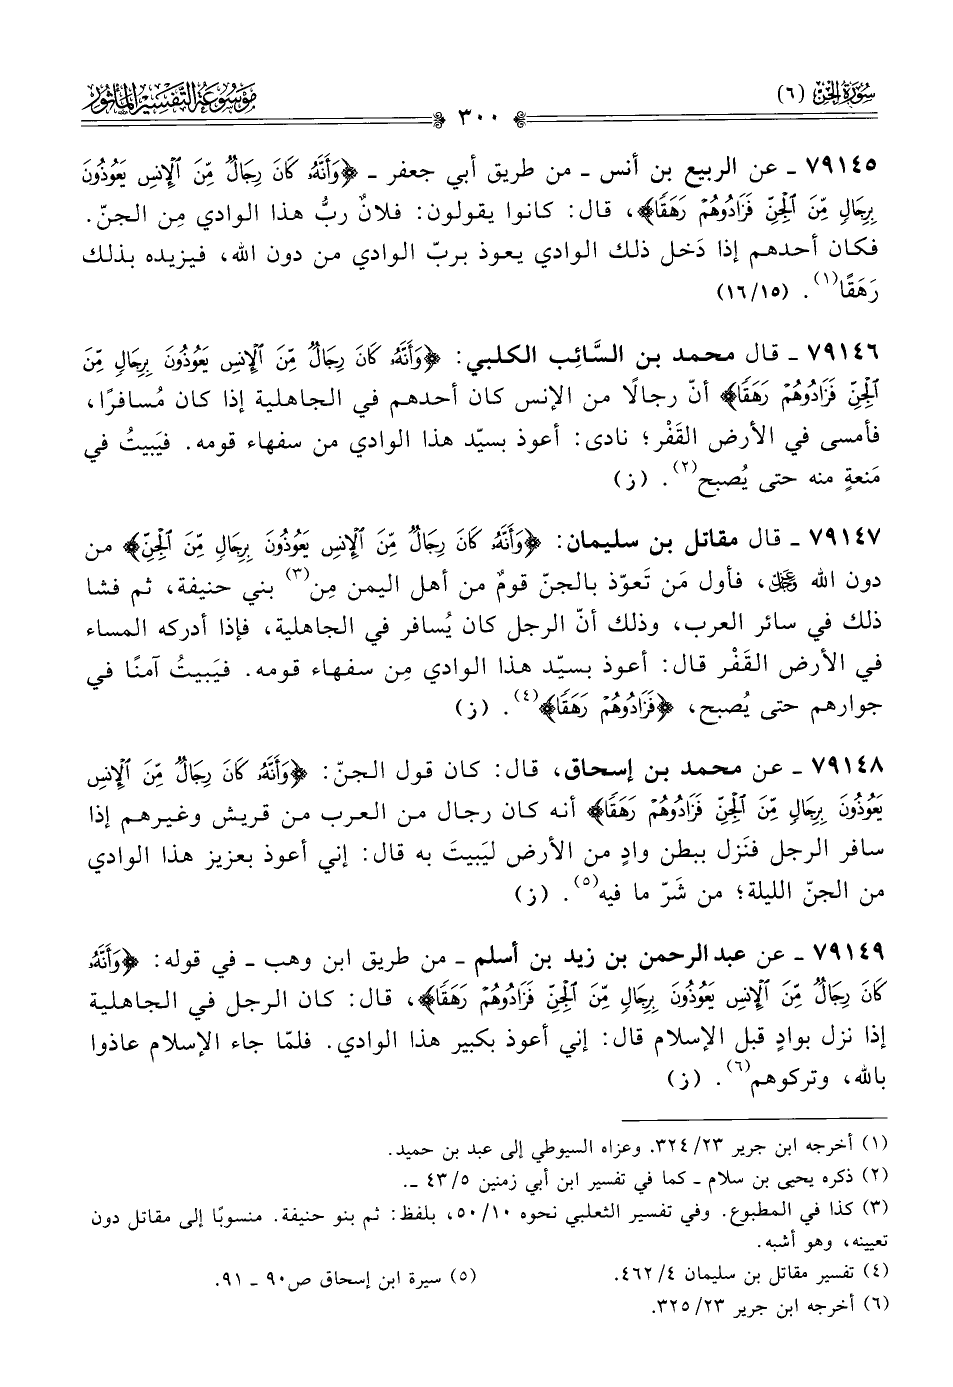 سُورَةُ الجِنّ (٦)
مَوْسُوعَةُ التَّفْسِيرِ المَأْثُور
٣٠٠
٧٩١٤٥ ـ عن الربيع بن أنس ـ من طريق أبي جعفر ـ ﴿وَأَنَّهُۥ كَانَ رِجَالٌ مِّنَ ٱلْإِنسِ يَعُوذُونَ
بِرِجَالٍ مِّنَ ٱلْجِنِّ فَزَادُوهُمْ رَهَقًا﴾، قال: كانوا يقولون: فلانٌ ربُّ هذا الوادي مِن الجنّ.
فكان أحدهم إذا دَخل ذلك الوادي يعوذ بربّ الوادي من دون الله، فيزيده بذلك
رَهَقًا(١). (١٥/١٦)
٧٩١٤٦ ـ قال محمد بن السَّائِب الكلبي: ﴿وَأَنَّهُۥ كَانَ رِجَالٌ مِّنَ ٱلْإِنسِ يَعُوذُونَ بِرِجَالٍ مِّنَ
ٱلْجِنِّ فَزَادُوهُمْ رَهَقًا﴾ أنّ رجالًا من الإنس كان أحدهم في الجاهلية إذا كان مُسافرًا،
فأمسى في الأرض القَفْر؛ نادى: أعوذ بسيّد هذا الوادي من سفهاء قومه. فيَبيتُ في
مَنعةٍ منه حتى يُصبح(٢). (ز)
٧٩١٤٧ ـ قال مقاتل بن سليمان: ﴿وَأَنَّهُۥ كَانَ رِجَالٌ مِّنَ ٱلْإِنسِ يَعُوذُونَ بِرِجَالٍ مِّنَ ٱلْجِنِّ﴾ من
دون الله ﷿، فأول مَن تَعوّذ بالجنّ قومٌ من أهل اليمن مِن(٣) بني حنيفة، ثم فشا
ذلك في سائر العرب، وذلك أنّ الرجل كان يُسافر في الجاهلية، فإذا أدركه المساء
في الأرض القَفْر قال: أعوذ بسيّد هذا الوادي مِن سفهاء قومه. فيَبيتُ آمنًا في
جوارهم حتى يُصبح، ﴿فَزَادُوهُمْ رَهَقًا﴾(٤). (ز)
٧٩١٤٨ ـ عن محمد بن إسحاق، قال: كان قول الجنّ: ﴿وَأَنَّهُۥ كَانَ رِجَالٌ مِّنَ ٱلْإِنسِ
يَعُوذُونَ بِرِجَالٍ مِّنَ ٱلْجِنِّ فَزَادُوهُمْ رَهَقًا﴾ أنه كان رجال من العرب من قريش وغيرهم إذا
سافر الرجل فنَزل ببطن وادٍ من الأرض ليَبيتَ به قال: إني أعوذ بعزيز هذا الوادي
من الجنّ الليلة؛ من شَرّ ما فيه(٥). (ز)
٧٩١٤٩ ـ عن عبدالرحمن بن زيد بن أسلم ـ من طريق ابن وهب ـ في قوله: ﴿وَأَنَّهُۥ
كَانَ رِجَالٌ مِّنَ ٱلْإِنسِ يَعُوذُونَ بِرِجَالٍ مِّنَ ٱلْجِنِّ فَزَادُوهُمْ رَهَقًا﴾، قال: كان الرجل في الجاهلية
إذا نزل بوادٍ قبل الإسلام قال: إني أعوذ بكبير هذا الوادي. فلمّا جاء الإسلام عاذوا
بالله، وتركوهم(٦). (ز)
(١) أخرجه ابن جرير ٢٣/٣٢٤. وعزاه السيوطي إلى عبد بن حميد.
(٢) ذكره يحيى بن سلام ـ كما في تفسير ابن أبي زمنين ٥/٤٣ ـ.
(٣) كذا في المطبوع. وفي تفسير الثعلبي نحوه ١٠/٥٠، بلفظ: ثم بنو حنيفة. منسوبًا إلى مقاتل دون
تعيينه، وهو أشبه.
(٤) تفسير مقاتل بن سليمان ٤/٤٦٢. (٥) سيرة ابن إسحاق ص٩٠ ـ ٩١.
(٦) أخرجه ابن جرير ٢٣/٣٢٥.